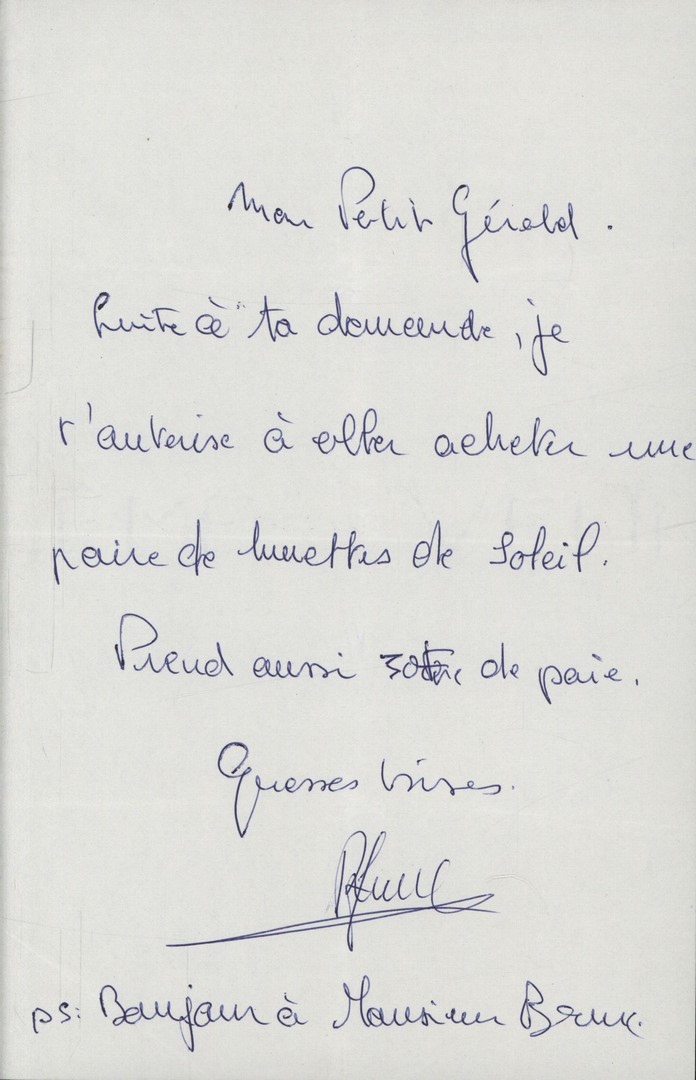 Mon Petit Gérald.
Suite à ta demande, je
t'autorise à aller acheter une
paire de lunettes de Soleil.
Prend aussi de paie.
Grosses bises.
ps: Bonjour à Monsieur